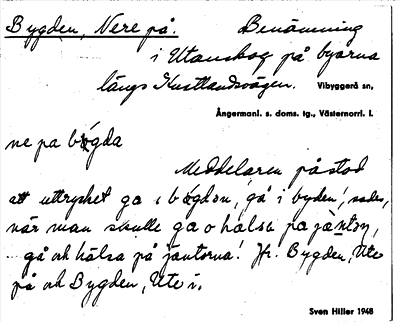 Bygden, Nere på. Benämning
i Utanskog på byarna
längs Kustlandsvägen. Vibyggerå sn,
Ångermanl. s. doms. tg., Västernorrl. l.
ne pa bögda
Meddelaren påstod
att uttryket ga i bögdon, gå i byden', sades,
när man skulle ga o halsa pa jänton,
gå och hälsa på jäntorna! Jfr. Bygden, Ute
på och Bygden, Ute i.
Sven Hiller 1948